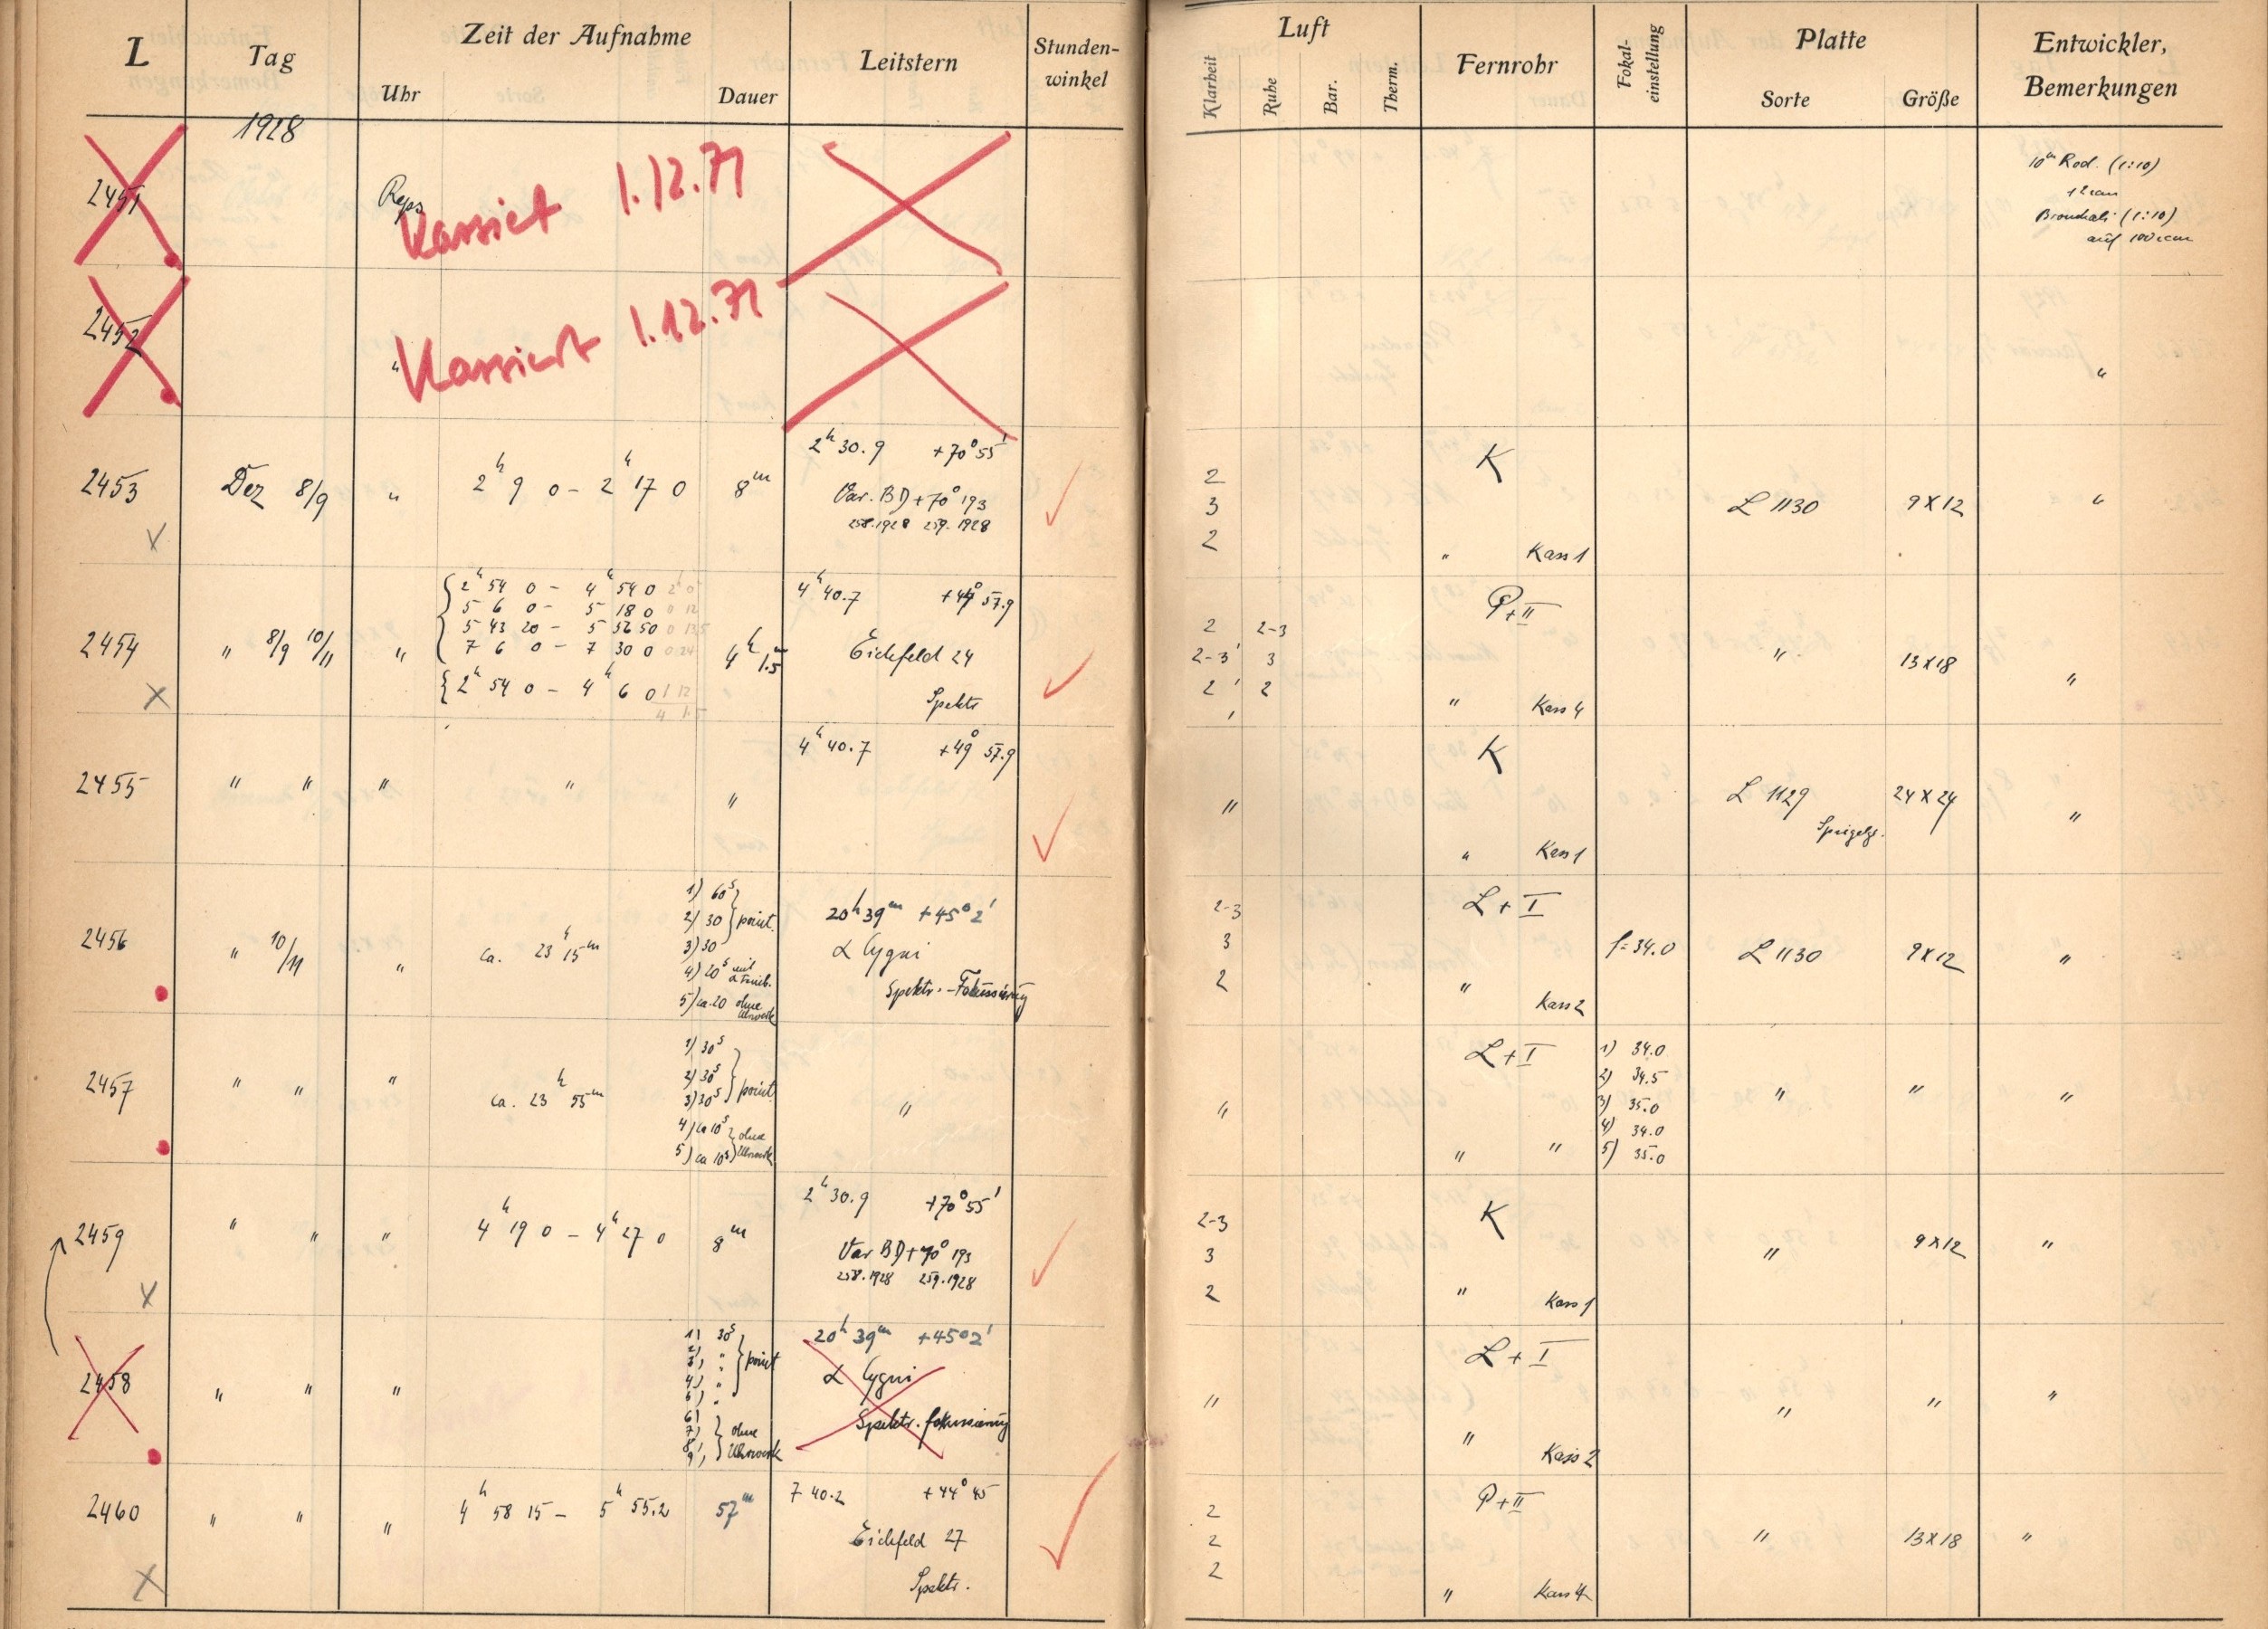 L Tag Zeit der Aufnahme Leitstern Stunden-
winkel
Uhr Dauer
Luft Fernrohr Fokal-
einstellung Platte Entwickler,
Bemerkungen
Klarheit Ruhe Bar. Therm. Sorte Größe
1928
2451 Reps Kassiert 1.12.71
10m Rod. (1:10)
12 ccm
(1:10)
auf 100 ccm
2452 " Kassiert 1.12.71 "
2h 30.9 +70° 55'
2453 Dez 8/9 " 2h 9 0 – 2h 17 0 8m
Var. BD +70° 193
258.1928 259.1928
2
3
2
K
" Kass 1
L 1130 9X12 "
4h 40.7 +49° 57.9
{ 2h 54 0 – 4h 54 0 2 0
5 6 0 – 5 18 0 0 12
5 43 20 – 5 56 50 0 13.5
7 6 0 – 7 30 0 0 24
{ 2h 54 0 – 4h 6 0 1 12
4 1.5
2454 " 8/9 10/11 " 4h 1.5m
Eichfeld 24
Spektr
2 2-3
2-3 3
2 2
P+II
" Kass 4
" 13X18 "
4h 40.7 +49° 57.9
2455 " " " " "
"
K
" Kass 1
L 1129 24X24 "
Spiegelgl.
2456 " 10/11 " ca. 23h 15m
1) 60s
2) 30 } point.
3) 30
4) 20s mit
5) ca. 20 ohne
Uhrwerk
20h 39m +45° 2'
α Cygni
Spektr.-Fokussierung
2-3
3
2
L+I
" Kass 2
f=34.0 L 1130 9X12 "
2457 " " " ca. 23h 55m
1) 30s
2) 30s } point
3) 30s
4) ca 10s } ohne
5) ca 10s } Uhrwerk
"
"
L+I
" "
1) 34.0
2) 34.5
3) 35.0
4) 34.0
5) 35.0
" " "
2h 30.9 +70° 55'
2459 " " " 4h 19 0 – 4h 27 0 8m
Var BD +70° 193
258.1928 259.1928
2-3
3
2
K
" Kass 1
" 9X12 "
2458 " " "
1) 30s
2) "
3) " } point
4) "
5) "
6)
7) } ohne
8) } Uhrwerk
9)
20h 39m +45° 2'
α Cygni
Spektr. fokussierung
"
L+I
" Kass 2
" " "
7 40.2 +44° 45
2460 " " " 4h 58 15 – 5h 55.2 57m
Eichfeld 27
Spektr.
2
2
2
P+II
" Kass 4
" 13X18 "